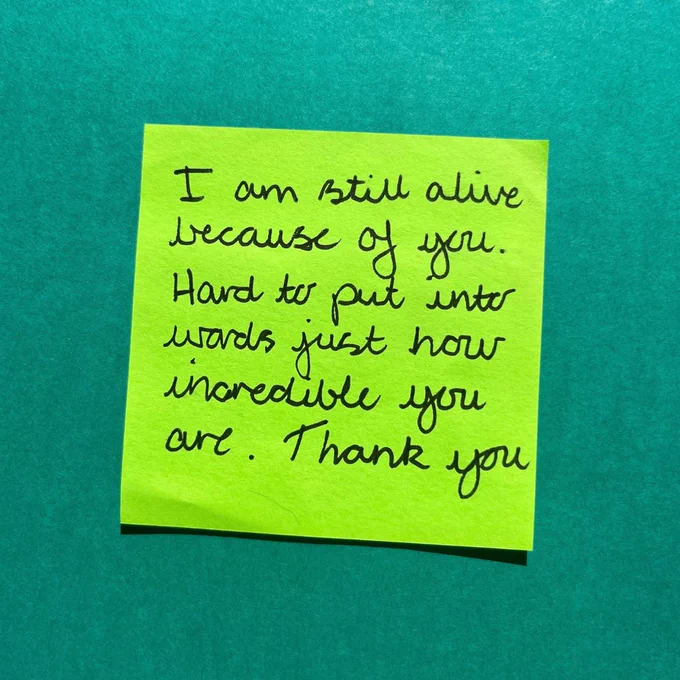 I am still alive
because of you.
Hard to put into
words just how
incredible you
are. Thank you